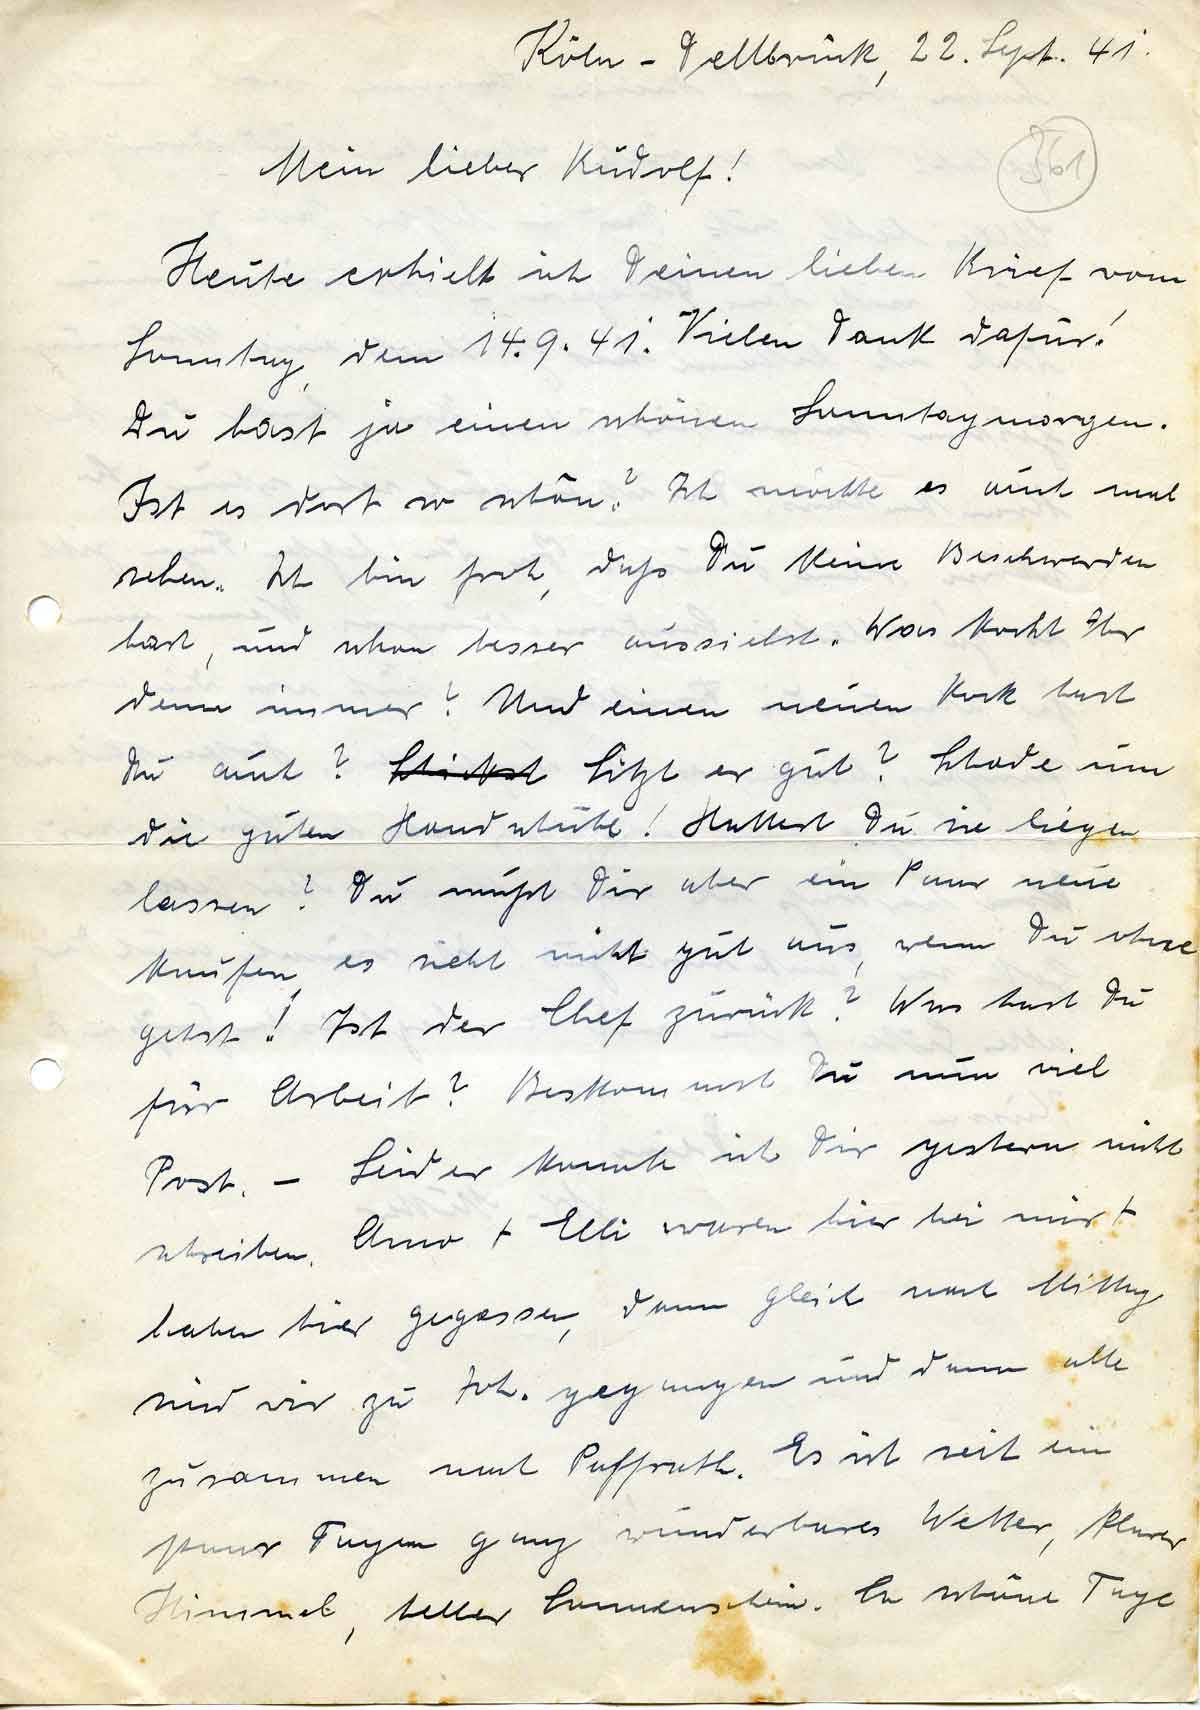 Köln-Dellbrück, 22. Sept. 41.
361
Mein lieber Rudolf!
Heute erhielt ich Deinen lieben Brief vom
Sonntag, dem 14.9.41. Vielen Dank dafür!
Du hast ja einen schönen Sonntagmorgen.
Ist es dort so schön? Ich möchte es auch mal
sehen. Ich bin froh, daß Du keine Beschwerden
hast, und schon besser aussiehst. Was kocht Ihr
denn immer? Und einen neuen Rock hast
Du auch? Sitzt er gut? Schade um
die guten Handschuhe! Hattest Du sie liegen
lassen? Du mußt Dir aber ein Paar neue
kaufen, es sieht nicht gut aus, wenn Du ohne
gehst! Ist der Chef zurück? Was hast Du
für Arbeit? Beskommst Du nun viel
Post. - Leider konnte ich Dir gestern nicht
schreiben. Arno + Elli waren hier bei mir +
haben hier gegessen, dann gleich nach Mittag
sind wir zu Joh. gegangen und dann alle
zusammen nach Paffrath. Es ist seit ein
paar Tagen ganz wunderbares Wetter, klarer
Himmel, heller Sonnenschein. So schöne Tage